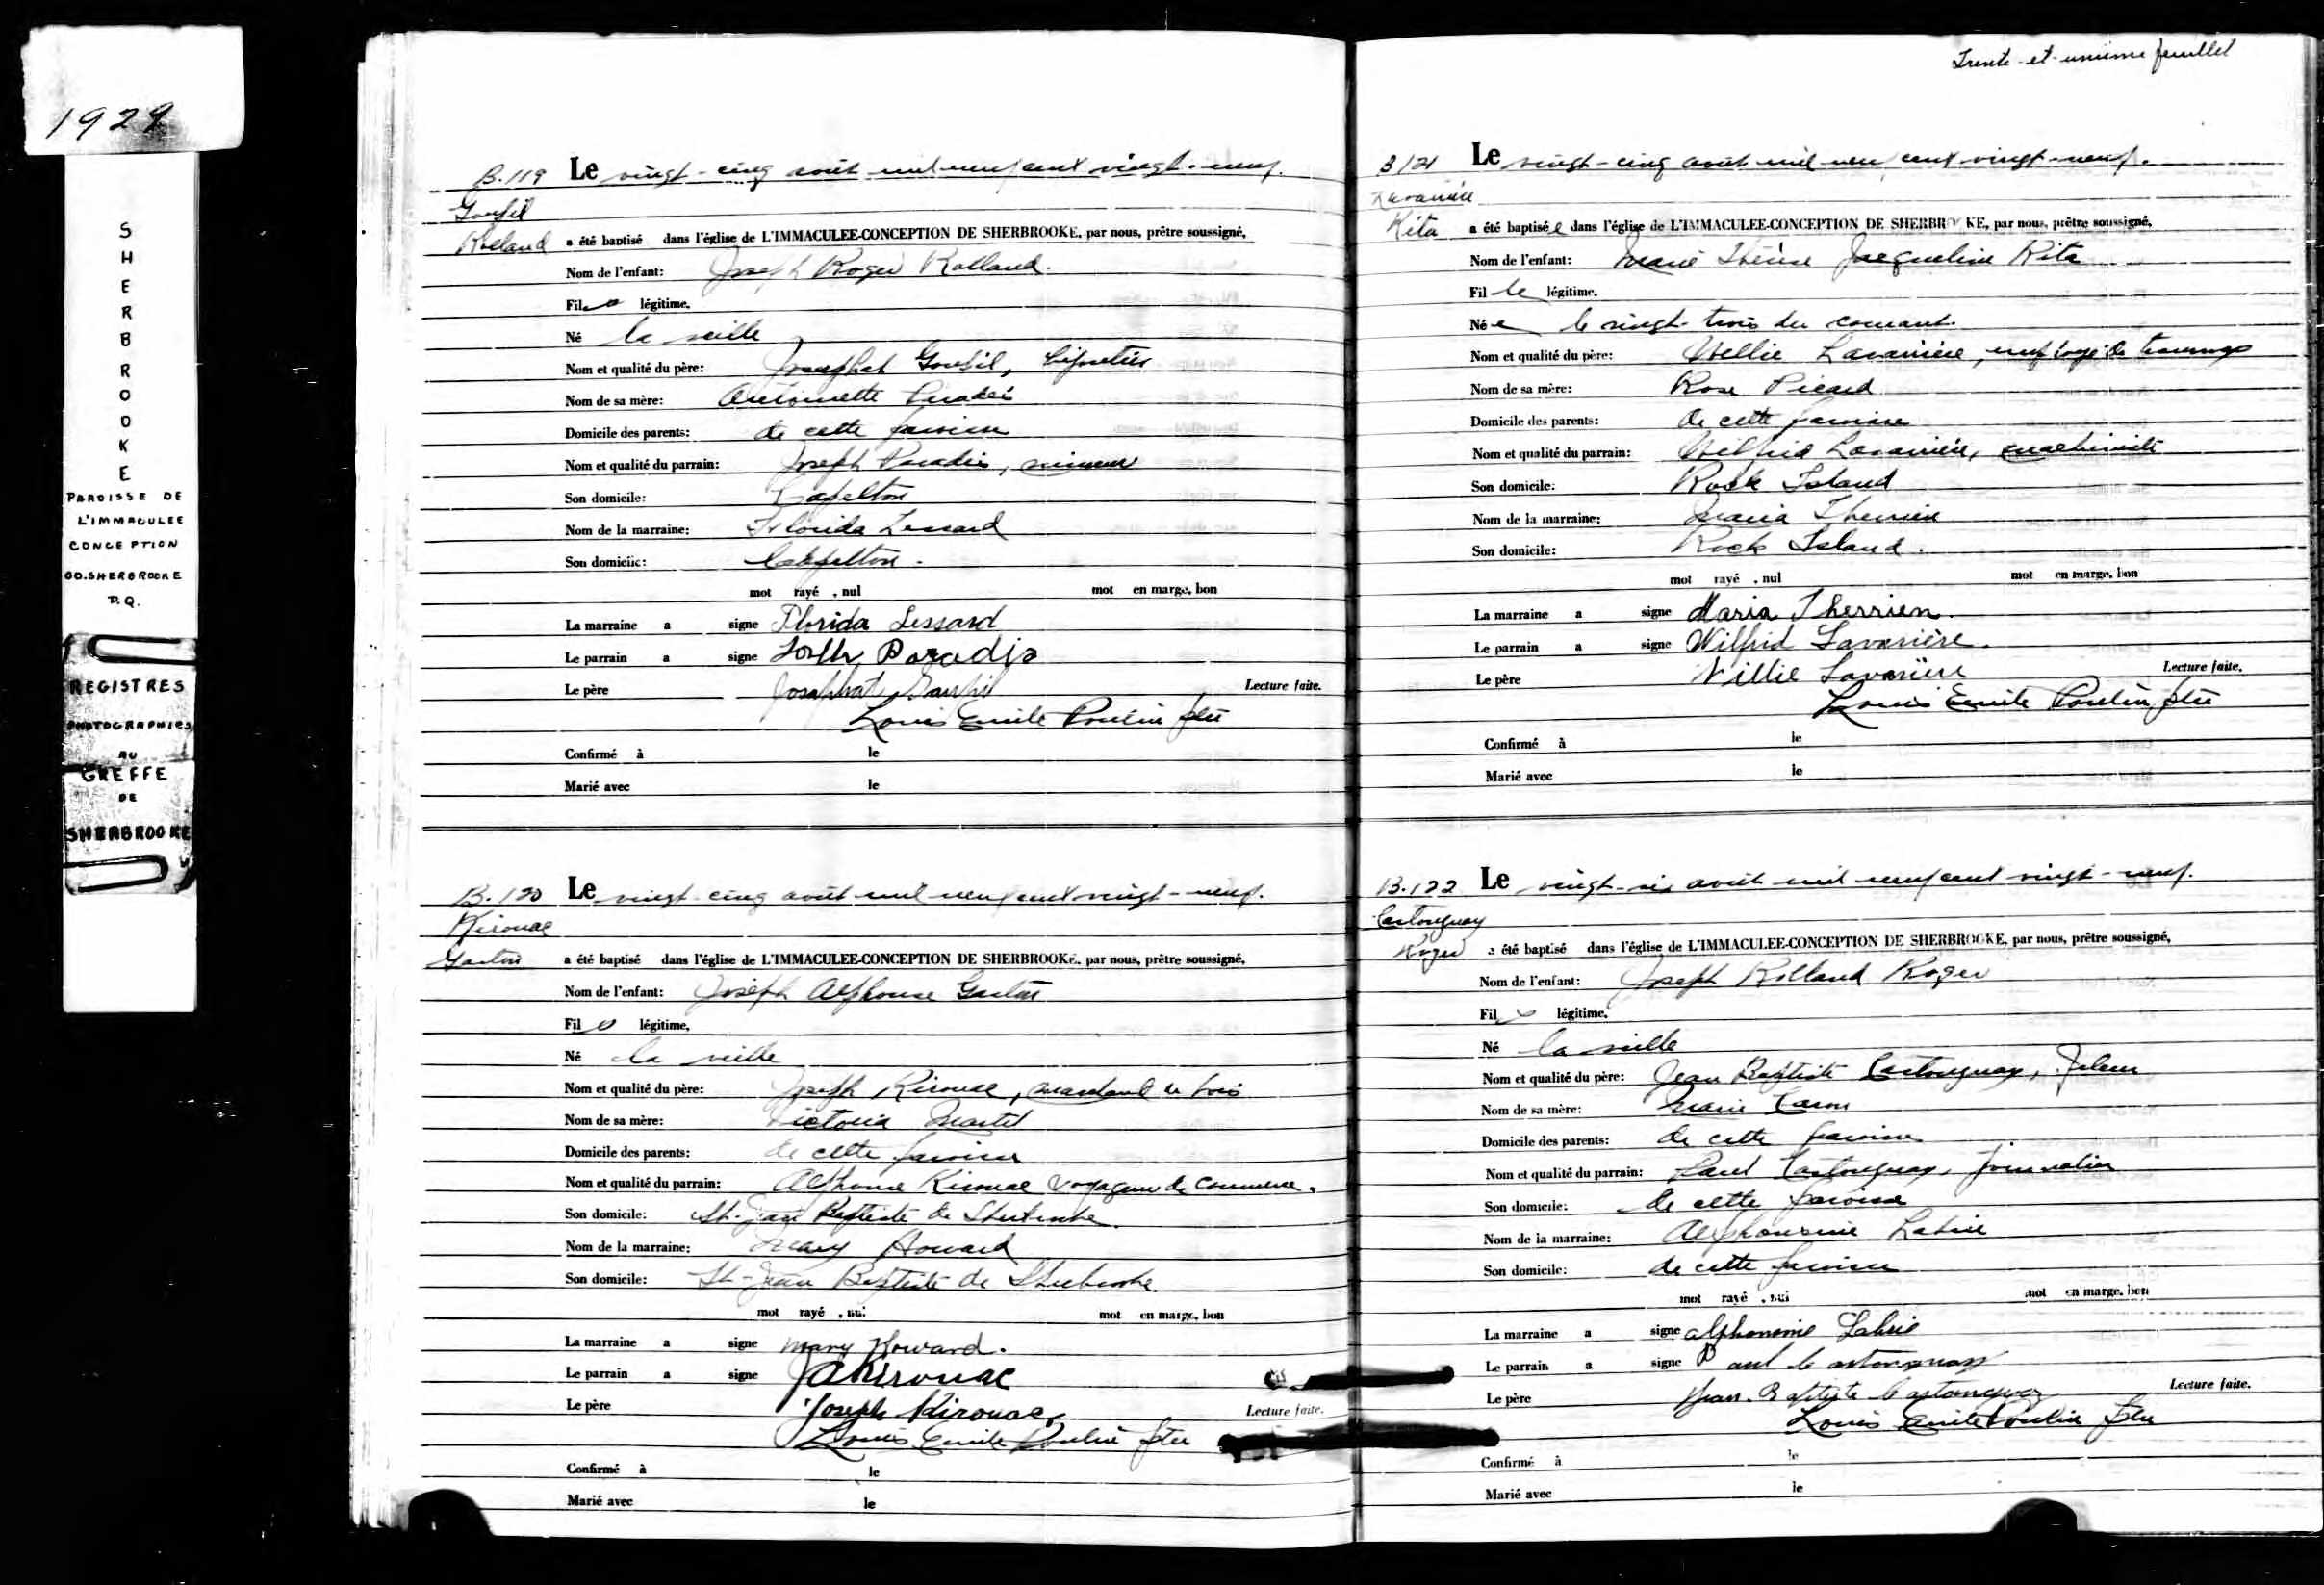 1929
SHERBROOKE
PAROISSE DE
L'IMMACULEE
CONCEPTION
CO. SHERBROOKE
P.Q.
REGISTRES
PHOTOGRAPHIES
AU
GREFFE
DE
SHERBROOKE
B.119 Le vingt-cinq août mil neuf cent vingt-neuf.
Rolland a été baptisé dans l'église de L'IMMACULEE-CONCEPTION DE SHERBROOKE, par nous, prêtre soussigné,
Nom de l'enfant: Joseph Roger Rolland.
Fils légitime.
Né la veille
Nom et qualité du père: Josaphat
Nom de sa mère: Antoinette
Domicile des parents: de cette paroisse
Nom et qualité du parrain: Joseph Paradis, mineur
Son domicile: Capelton
Nom de la marraine: Florida Lessard
Son domicile: Capelton.
mot rayé , nul mot en marge, bon
La marraine a signé Florida Lessard
Le parrain a signé Joseph Paradis
Le père Josaphat
Lecture faite.
Louis Emile Poulin ptre
Confirmé à le
Marié avec le
B.120 Le vingt-cinq août mil neuf cent vingt-neuf.
Kirouac
Gaston a été baptisé dans l'église de L'IMMACULEE-CONCEPTION DE SHERBROOKE, par nous, prêtre soussigné,
Nom de l'enfant: Joseph Alphonse Gaston
Fils légitime.
Né la veille
Nom et qualité du père: Joseph Kirouac, marchand de bois
Nom de sa mère: Victoria Martel
Domicile des parents: de cette paroisse
Nom et qualité du parrain: Alphonse Kirouac voyageur de commerce.
Son domicile: St-Jean Baptiste de Sherbrooke
Nom de la marraine: Mary Howard
Son domicile: St-Jean Baptiste de Sherbrooke
mot rayé , nul mot en marge, bon
La marraine a signé Mary Howard.
Le parrain a signé JAKirouac
Le père Joseph Kirouac
Lecture faite.
Louis Emile Poulin ptre
Confirmé à le
Marié avec le
Trente-et-unième feuillet
B121 Le vingt-cinq août mil neuf cent vingt-neuf.
Lavarière
Rita a été baptisée dans l'église de L'IMMACULEE-CONCEPTION DE SHERBROOKE, par nous, prêtre soussigné,
Nom de l'enfant: Marie Thérèse Jacqueline Rita
Fille légitime.
Née le vingt-trois du courant.
Nom et qualité du père: Willie Lavarière, employé de tramways
Nom de sa mère: Rose Picard
Domicile des parents: de cette paroisse
Nom et qualité du parrain: Wilfrid Lavarière, machiniste
Son domicile: Rock Island
Nom de la marraine: Maria Therrien
Son domicile: Rock Island.
mot rayé , nul mot en marge, bon
La marraine a signé Maria Therrien.
Le parrain a signé Wilfrid Lavarière.
Le père Willie Lavarière
Lecture faite.
Louis Emile Poulin, ptre
Confirmé à le
Marié avec le
B.122 Le vingt-six août mil neuf cent vingt-neuf.
Castonguay
Roger a été baptisé dans l'église de L'IMMACULEE-CONCEPTION DE SHERBROOKE, par nous, prêtre soussigné,
Nom de l'enfant: Joseph Rolland Roger
Fils légitime.
Né la veille
Nom et qualité du père: Jean Baptiste Castonguay, fileur
Nom de sa mère: Marie Caron
Domicile des parents: de cette paroisse
Nom et qualité du parrain: Paul Castonguay, journalier
Son domicile: de cette paroisse
Nom de la marraine: Alphonsine Labrie
Son domicile: de cette paroisse
mot rayé , nul mot en marge, bon
La marraine a signé Alphonsine Labrie
Le parrain a signé Paul Castonguay
Le père Jean-Baptiste Castonguay
Lecture faite.
Louis Emile Poulin ptre
Confirmé à le
Marié avec le